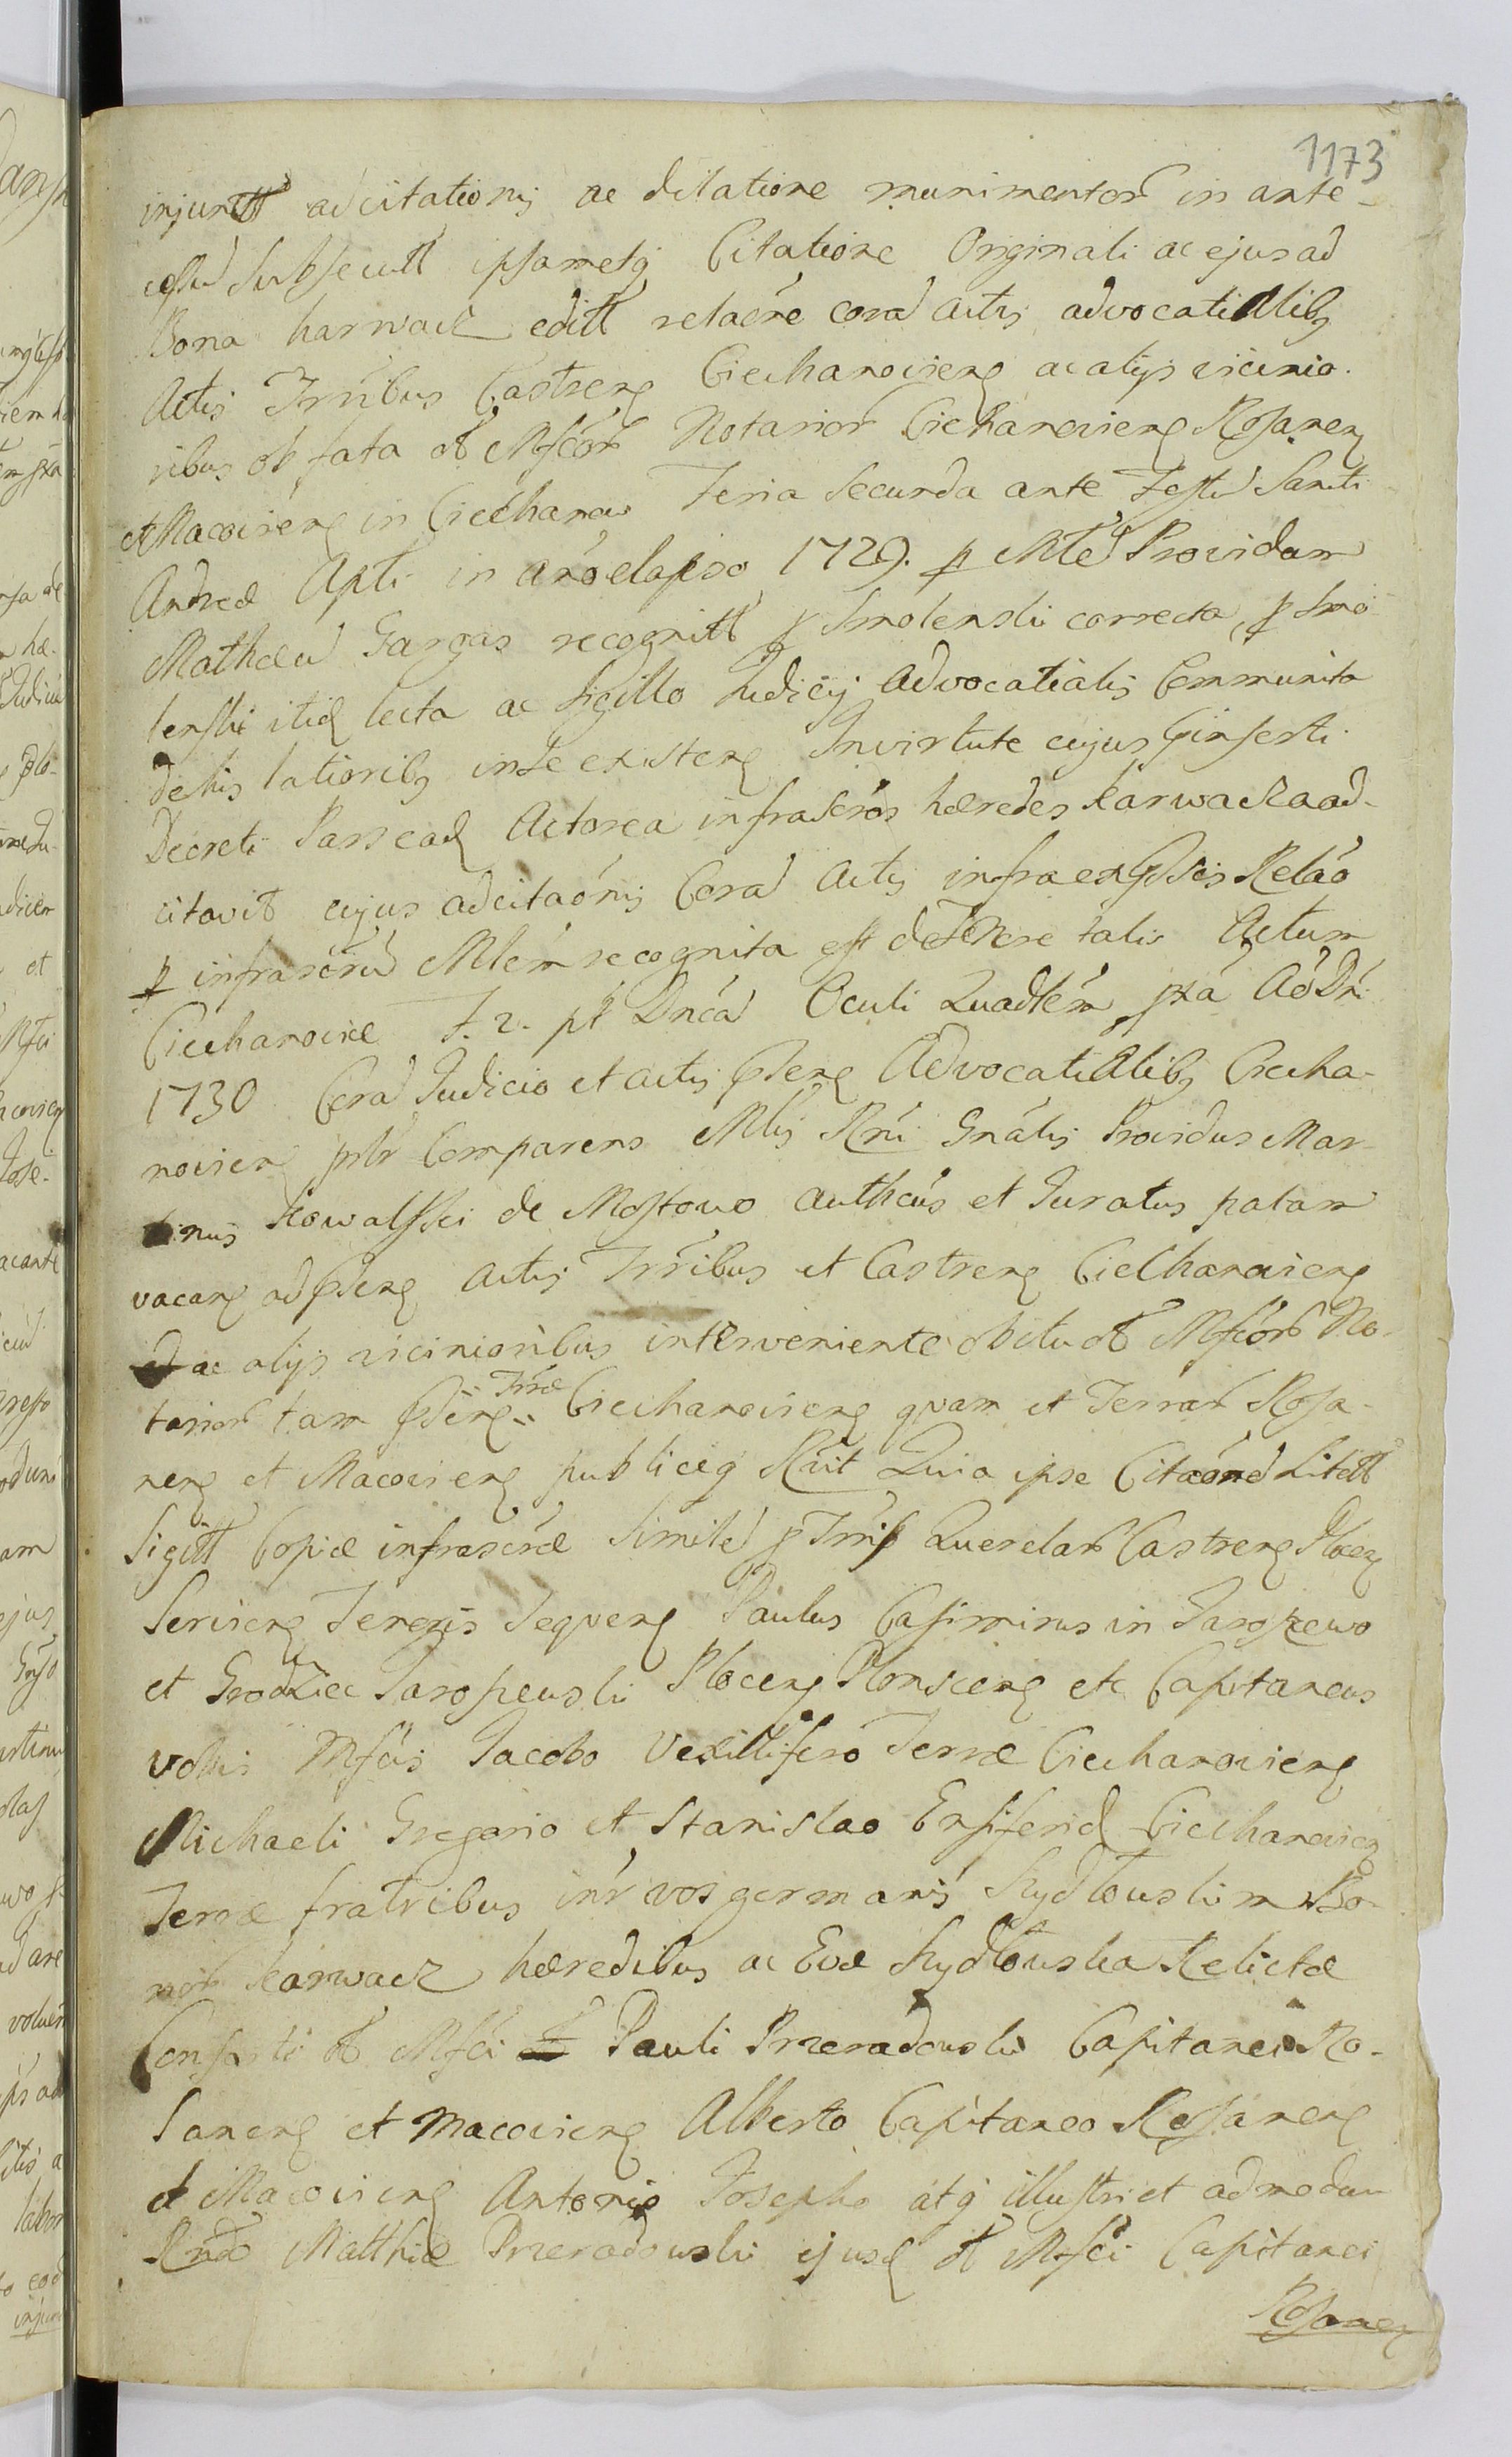 1173
injunctt adcitationis ac dilatione munimentor in ante-
cessu subsecutt ipsametq Citatione Originali ac ejus ad
Bona karwacz editt relacõne corã actis advocatialibq
Actis Trribus Castreng Ciechanovieng ac alijs vicinio-
ribus ob fata ol Mfcõr Notarior Ciechanovieng Rosaneng
et Macovieng in Ciechanow Feria Secunda ante Festũ Sancti
Andreæ Apli in anõ elapso 1729. p Mlẽ Providum
Mathæũ Gargas recognitt p Smolenski correcta, p Smo-
lenski itid lecta ac sigillo Judicij Advocatialis Communita
de his latioribq in se existeng Invirtute cujus pinserti
Decreti Pars ead Actorea infrascrõs hæredes karwacka ad-
citavit cujus adcitaõnis Corã Actis infra expssis Relaõ
p infrascrũ Mlẽm recognita est de tenore tali Actum
Ciechanoviæ F. 2. pt Dncã Oculi Quadlẽm pxã Aõ Dñi
1730 Corã Judicio et actis pseng Advocatialibq Ciecha-
novieng pslr Comparens Mlis Rnĩ Gnãlis Providus Mar-
tinus Kowalski de Mostowo authcũs et Juratus palam
vacang ad pseng Actis Trribus et Castreng Ciechanovieng
ac alijs vicinioribus interveniente obitu ol Mfcõr No-
tarior tam pseng Trræ Ciechanovieng quam et Terrar Rosa-
neng et Macovieng publiceq Rcũit Quia ipse Citaõnẽ Litett
Sigitt Copiæ infrascræ similẽ p Querelar Castreng Ploceng
Servieng Tenoris sequeng Paulus Casimirus in Jaroszewo
et Grodziec Jaroszewski Ploceng Plonsceng etc Capitaneus
vobis Mfcis Jacobo Vexillifero Terræ Ciechanovieng
Michaeli Gregorio et Stanislao Ensiferid Ciechanovieng
Terræ fratribus intr vos germanis Rydlowski Bo-
nor karwacz hæredibus ac Evæ Rydlowska Relictæ
Consorti ol Mfci Pauli Przeradowski Capitanei Ro-
saneng et Macovieng Alberto Capitaneo Rosaneng
et Macovieng Antonio Josepho atq illustri et admodum
Rndo Matthiæ Przeradowski ejusd ol Mfci Capitanei
Rosaneng